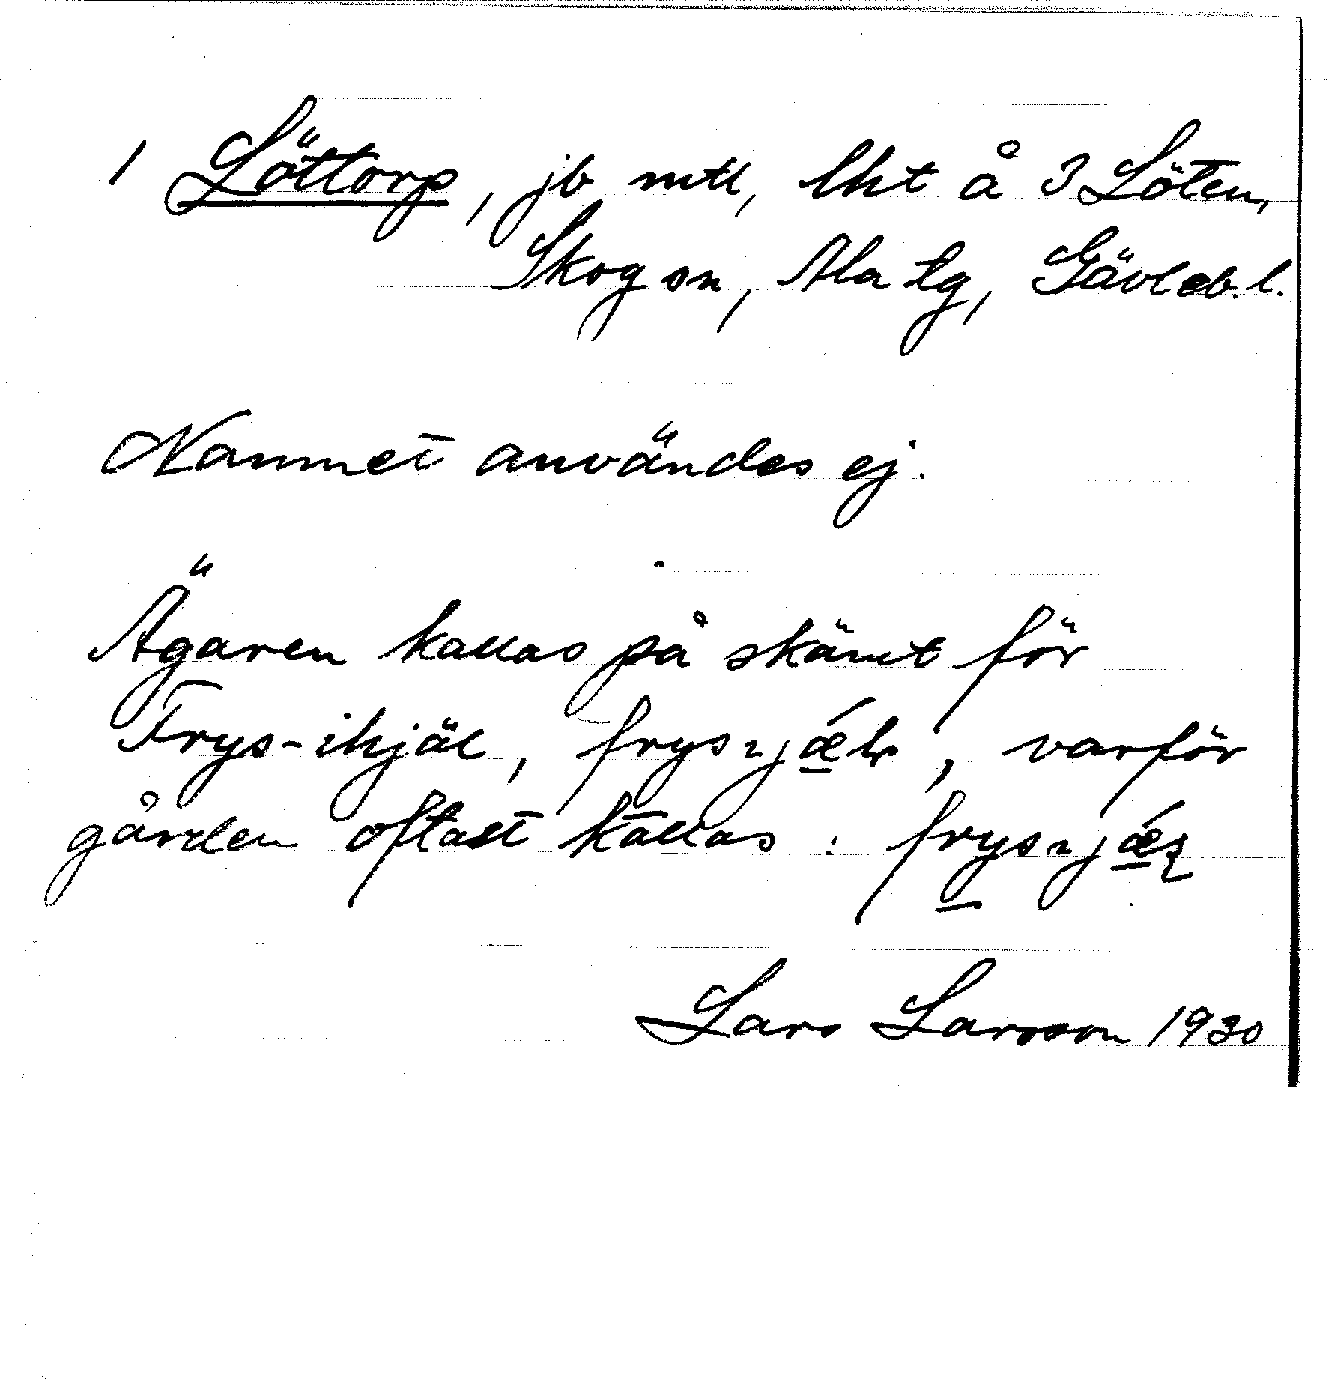 1 Löttorp, jb mtl, lht å 3 Löten,
Skog sn, Ala tg, Gävleb. l.
Namnet användes ej.
Ägaren kallas på skämt för
Frys-ihjäl, varför
gården oftast kallas:
Lars Larsson 1930